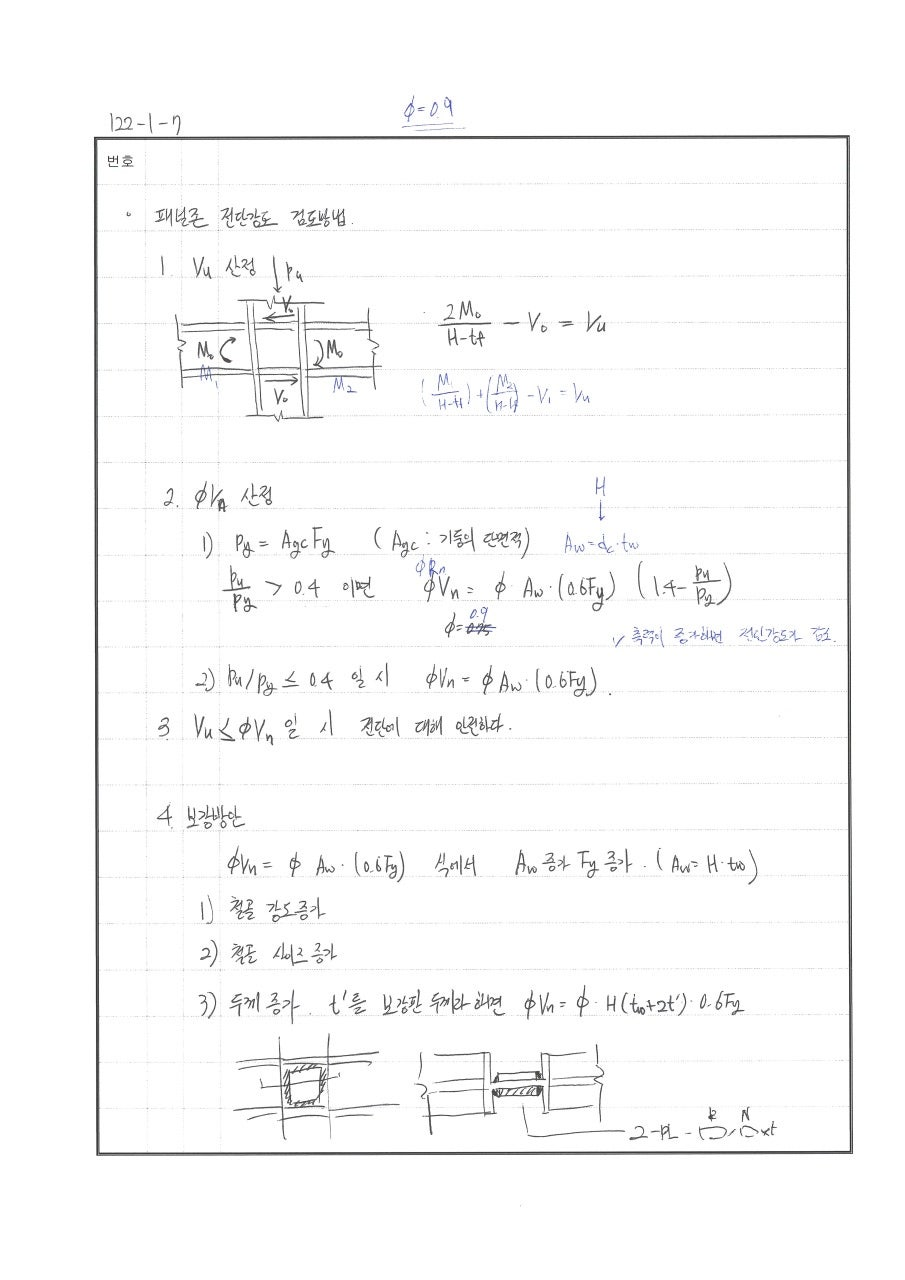 122-1-7
φ=0.9
번호
◦ 패널존 전단강도 검토방법.
1. Vu 산정 ↓Pu
V₀
M₀ M₀
M₁ M₂
V₀
2M₀/(H-tf) - V₀ = Vu
(M₁/(H-tf))+(M₂/(H-tf)) - V₁ = Vu
2. φVn 산정
H
↓
1) Py = Agc Fy (Agc : 기둥의 단면적) Aw=dc·tw
φRn
Pu/Py > 0.4 이면 φVn = φ Aw·(0.6Fy) (1.4 - Pu/Py)
0.9
φ=0.75
축력이 증가하면 전단강도가 감소.
2) Pu/Py ≤ 0.4 일 시 φVn = φ Aw·(0.6Fy).
3. Vu ≤ φVn 일 시 전단에 대해 안전하다.
4. 보강방안
φVn = φ Aw·(0.6Fy) 식에서 Aw 증가 Fy 증가. (Aw = H·tw)
1) 철골 강도증가
2) 철골 사이즈 증가
3) 두께 증가. t'를 보강판 두께라 하면 φVn = φ·H(tw+2t')·0.6Fy
2-PL-